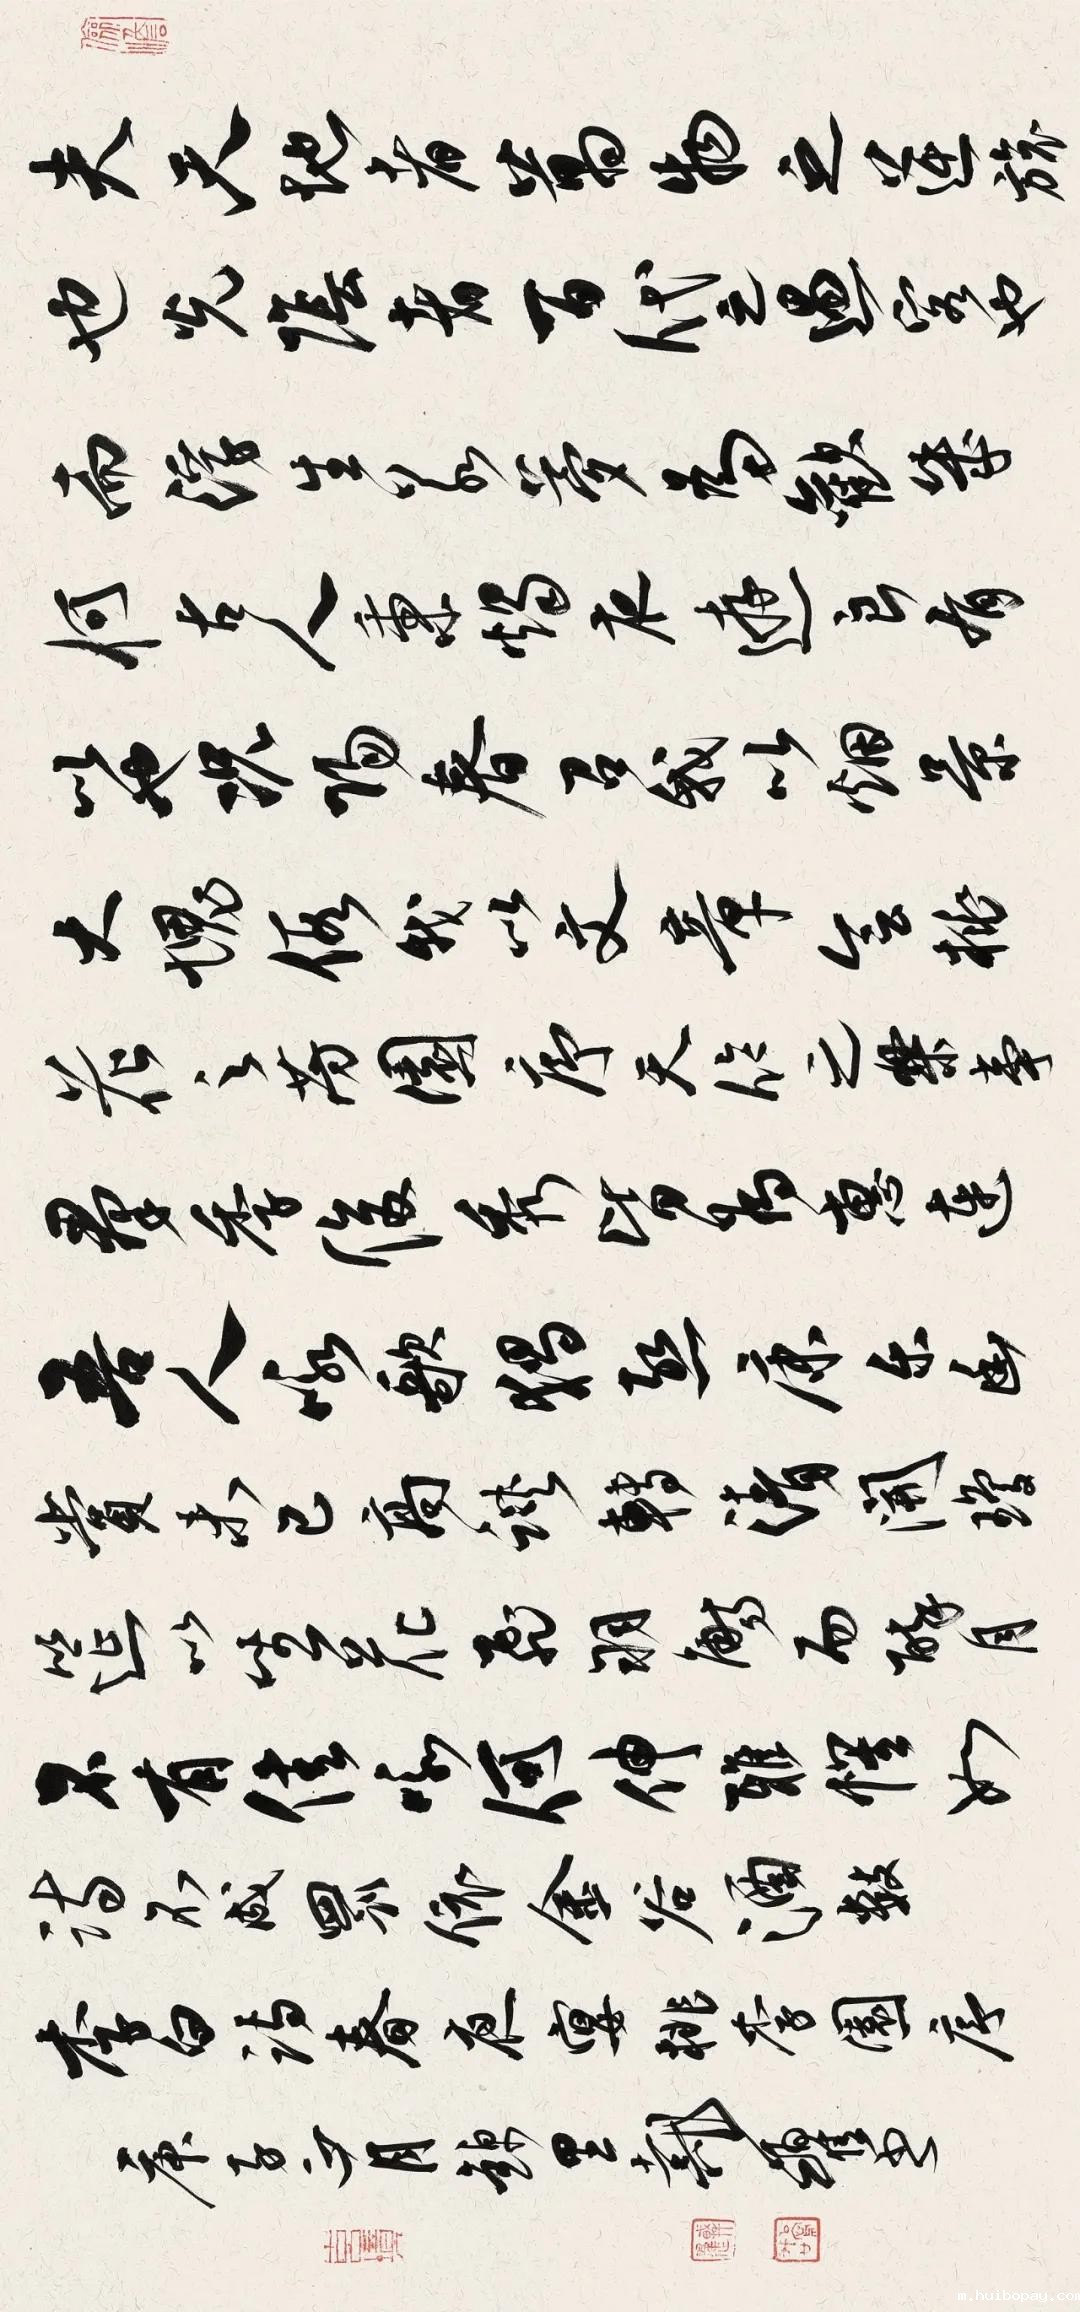 夫天地者萬物之逆旅
也光陰者百代之過客也
而浮生若夢為歡幾
何古人秉燭夜遊良有
以也況陽春召我以烟景
大塊假我以文章會桃
花之芳園序天倫之樂事
群季俊秀皆為惠連
吾人詠歌獨慚康樂幽
賞未已高談轉清開瓊
筵以坐花飛羽觴而醉月
不有佳詠何伸雅懷如
詩不成罰依金谷酒數
李白詩春夜宴桃李園序
庚子月里書
m.huibopay.com